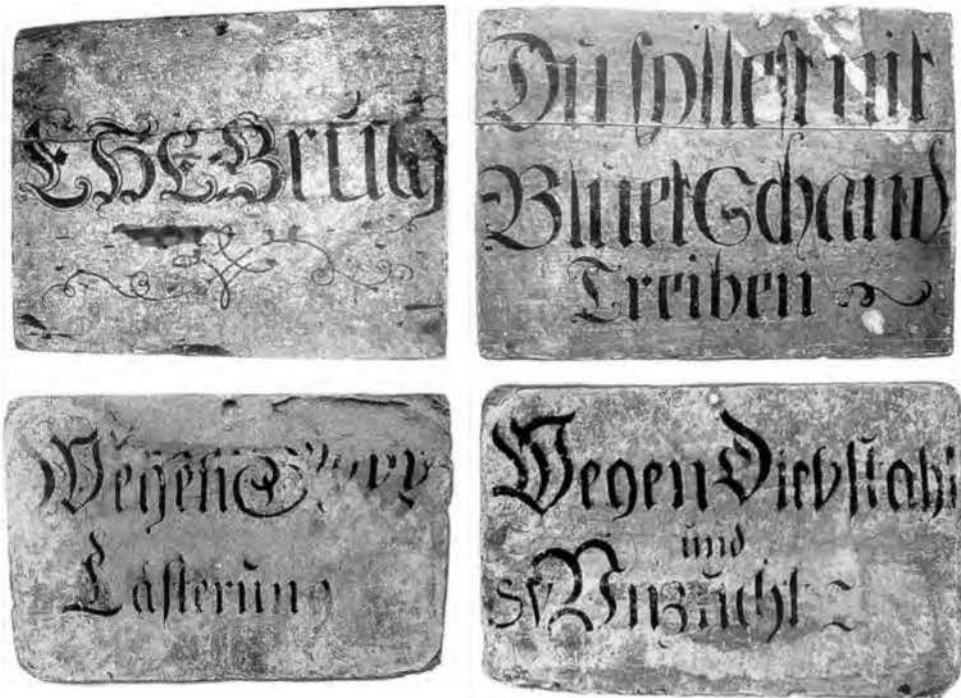 EHEBrůch
Du sollest nit
BluetSchand
Treiben
Wegen Gott
Lästerung
Wegen Diebstahl
und
SV Vnzůcht